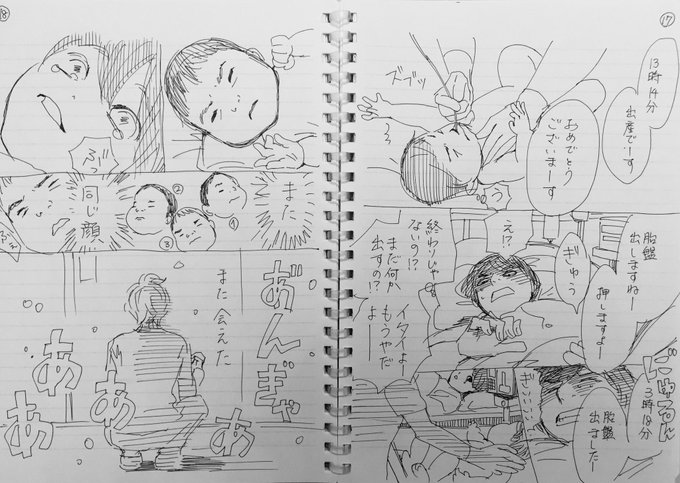 ⑰
13時14分
出産でーす
おめでとう
ございまーす
ズズッ
胎盤
出しますねー
押しますよー
ぎゅう
え!?
終わりじゃ
ないの!?
まだ何か
出すの!?
イタイよ
もうやだ
よー
3時18分
胎盤
出ましたー
⑱
ふっ
また
②
③
①
同じ顔
ふえ
おんぎゃ
また会えた
ああああ